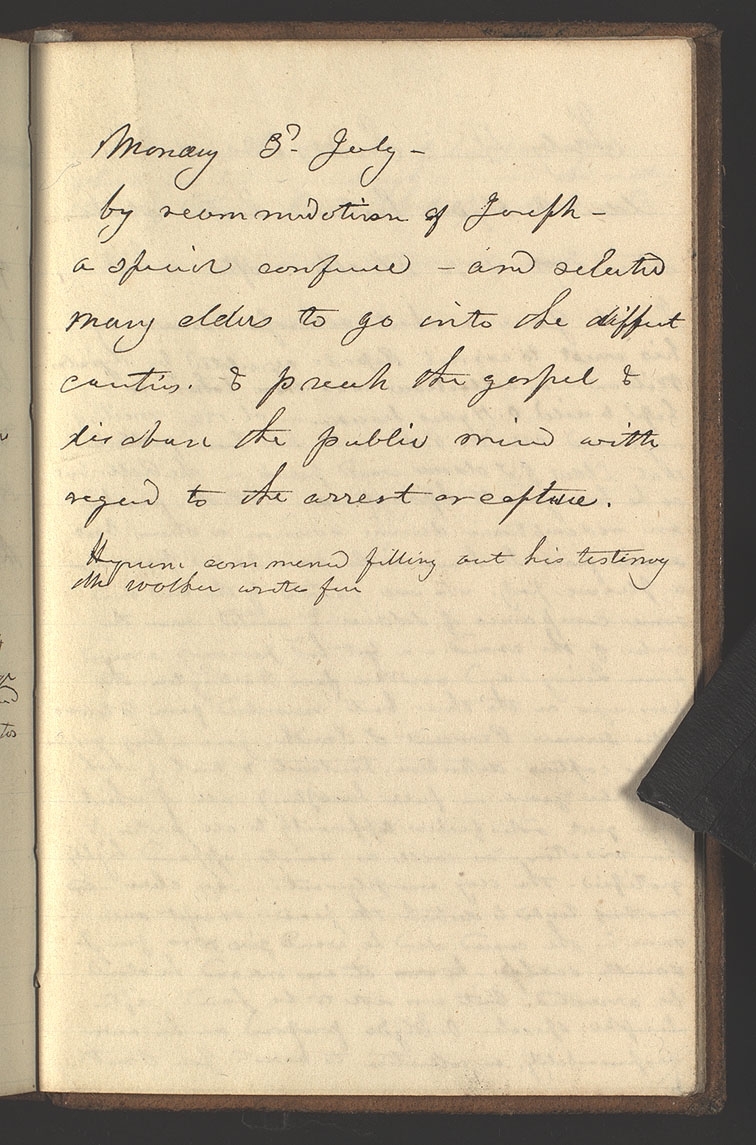 Monday 3d. July-
by recommndation of Joseph-
a speciol confrence - and selected
many elders to go into the diffent
counties. & preach the gospel &
disabuse the public mind with
regard to the arrest or capture.
Hyrum commenced filling out his testimony
wrote for